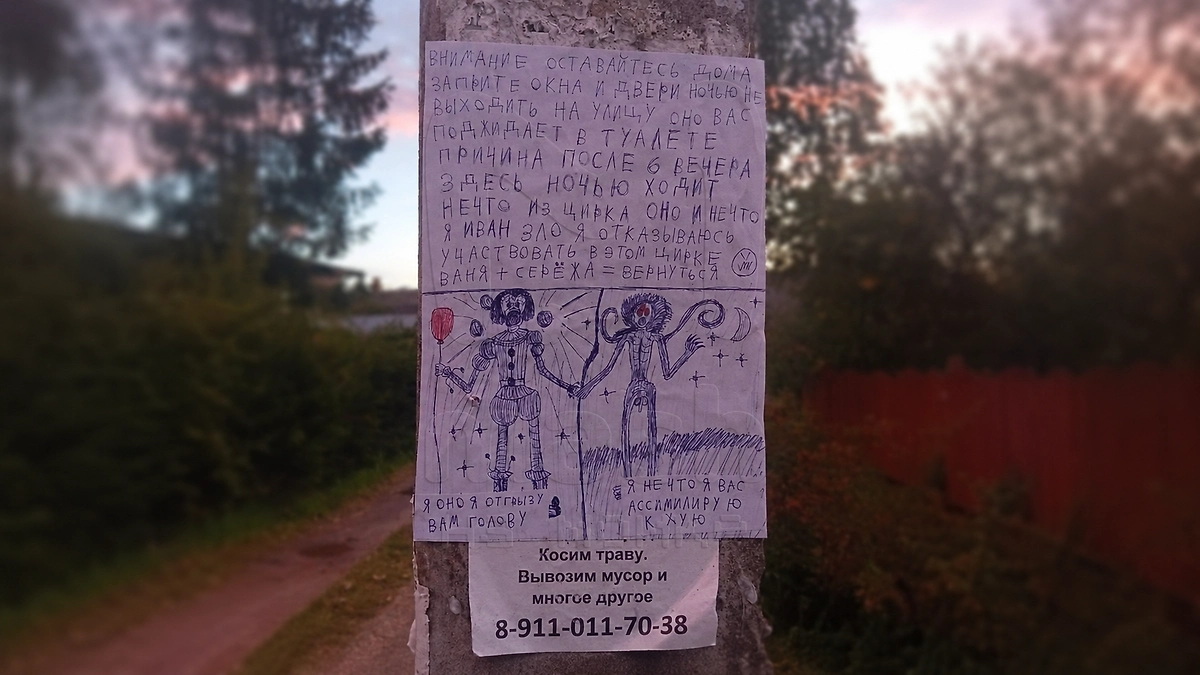 ВНИМАНИЕ ОСТАВАЙТЕСЬ ДОМА
ЗАПРИТЕ ОКНА И ДВЕРИ НОЧЬЮ НЕ
ВЫХОДИТЬ НА УЛИЦУ ОНО ВАС
ПОДЖИДАЕТ В ТУАЛЕТЕ
ПРИЧИНА ПОСЛЕ 6 ВЕЧЕРА
ЗДЕСЬ НОЧЬЮ ХОДИТ
НЕЧТО ИЗ ЦИРКА ОНО И НЕЧТО
Я ИВАН ЗЛО Я ОТКАЗЫВАЮСЬ
УЧАСТВОВАТЬ В ЭТОМ ЦИРКЕ
ВАНЯ + СЕРЁЖА = ВЕРНУТЬСЯ
Я ОНО Я ОТГРЫЗУ
ВАМ ГОЛОВУ
Я НЕЧТО Я ВАС
АССИМИЛИРУЮ
К ХУЮ
Косим траву.
Вывозим мусор и
многое другое
8-911-011-70-38